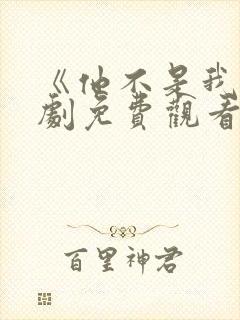 《他不是我
劇免費觀看
百里神君